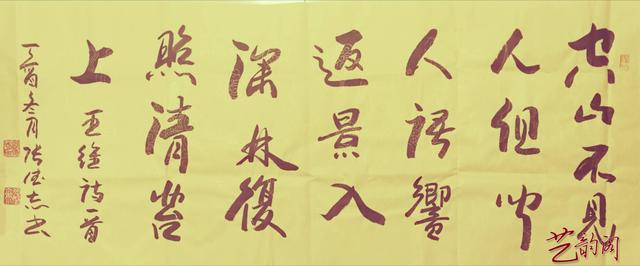 空山不見
人但聞
人語響
返景入
深林復
照清苔
上 王維詩一首
丁酉冬月張德志書
艺韵阁